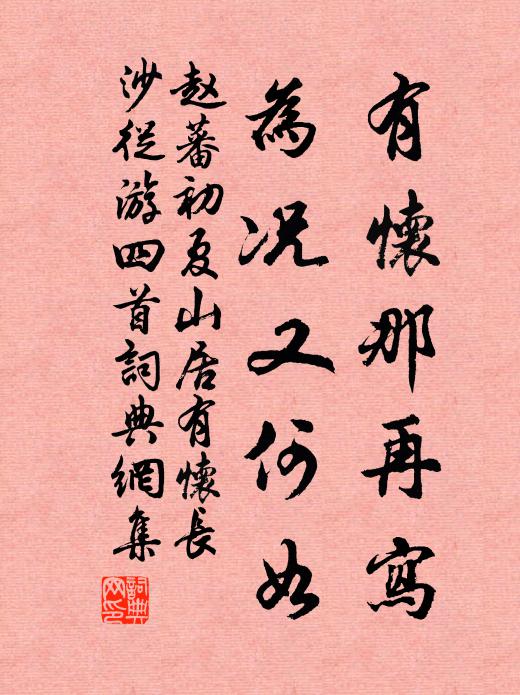 有懷那再寫
為况又何如
赵蕃初夏山居有懷長
沙從游四首詞典網集
詞典网印